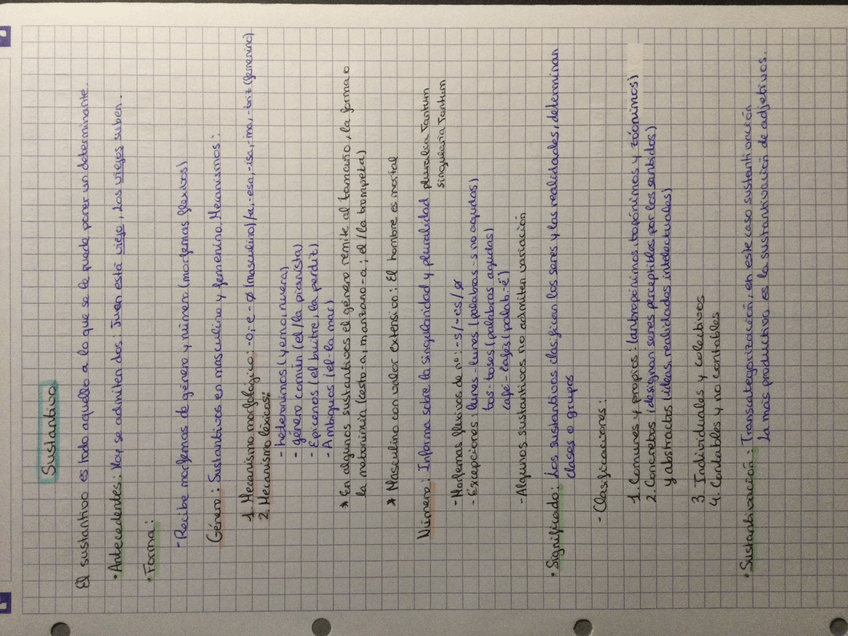 Sustantivo
El sustantivo es todo aquello a lo que se le puede poner un determinante.
• Antecedentes: Hoy se admiten dos. Juan está viejo, Los viejos suben.
• Forma:
- Recibe morfemas de género y número (morfemas flexivos)
Género: Sustantivos en masculino y femenino. Mecanismos:
1. Mecanismo morfológico: -o, -e - ø (masculino)/a, -esa, -isa, -ina, -triz (femenino).
2. Mecanismo léxicos:
- Heterónimos (yerno, nuera)
- género común (el/la pianista)
- Epicenos (el buitre, la perdiz)
- Ambiguos (el-la mar)
* En algunos sustantivos el género remite al tamaño, la forma o
la metonimia (cesto-a, manzano-a; el/la trompeta)
* Masculino con valor extensivo: El hombre es mortal
Número: Informa sobre la singularidad y pluralidad pluralia Tantum
singularia Tantum
- Morfemas flexivos de nº: -s/-es/ø
- Excepciones: lunes-lunes (palabras -s no agudas)
tos-toses (palabras agudas)
café-cafés (palab -é)
- Algunos sustantivos no admiten variación
• Significado: Los sustantivos clasifican los seres y las realidades, determinan
clases o grupos
- Clasificaciones:
1. Comunes y propios: (antropónimos, topónimos y zoónimos)
2. Concretos (designan seres perceptibles por los sentidos)
y abstractos (ideas, realidades intelectuales)
3. Individuales y colectivos
4. Contables y no contables
• Sustantivación: Transcategorización, en este caso sustantivación
La más productiva es la sustantivación de adjetivos.